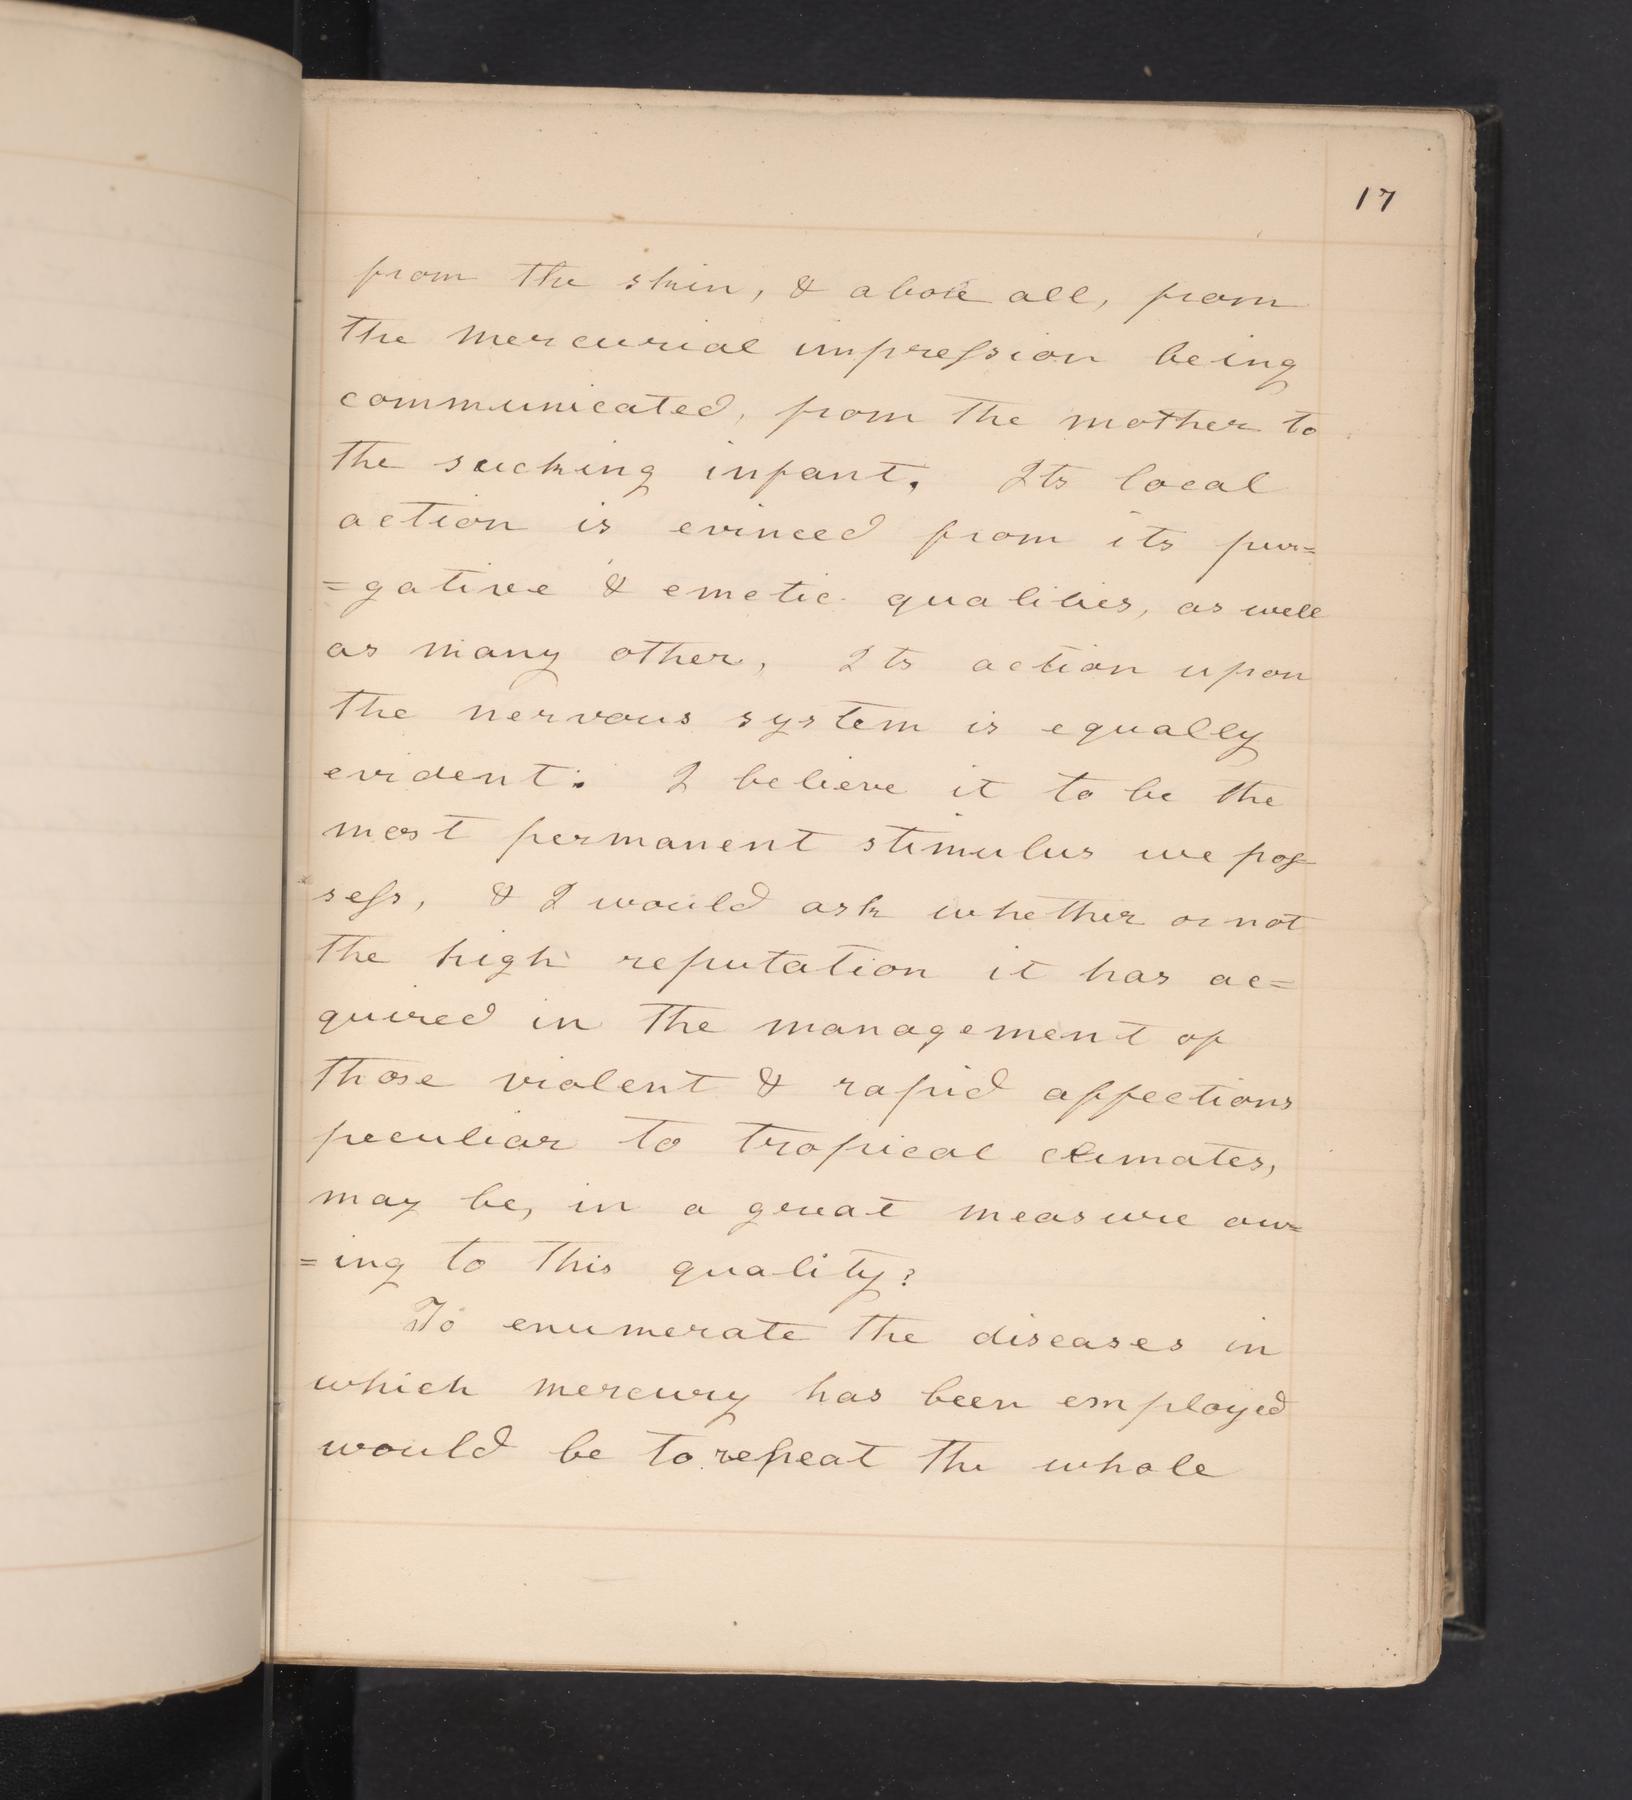 17
from the skin, & above all, from
the mercurial impression being
communicated, from the mother to
the sucking infant. Its local
action is evinced from its pur=
=gative & emetic qualities, as well
as many other, Its action upon
the nervous system is equally
evident: I believe it to be the
most permanent stimulus we pos
sess, & I would ask whether or not
the high reputation it has ac=
quired in the management of
those violent & rapid affections
peculiar to tropical climates,
may be, in a great measure ow=
=ing to this quality?
To enumerate the diseases in
which mercury has been employed
would be to repeat the whole